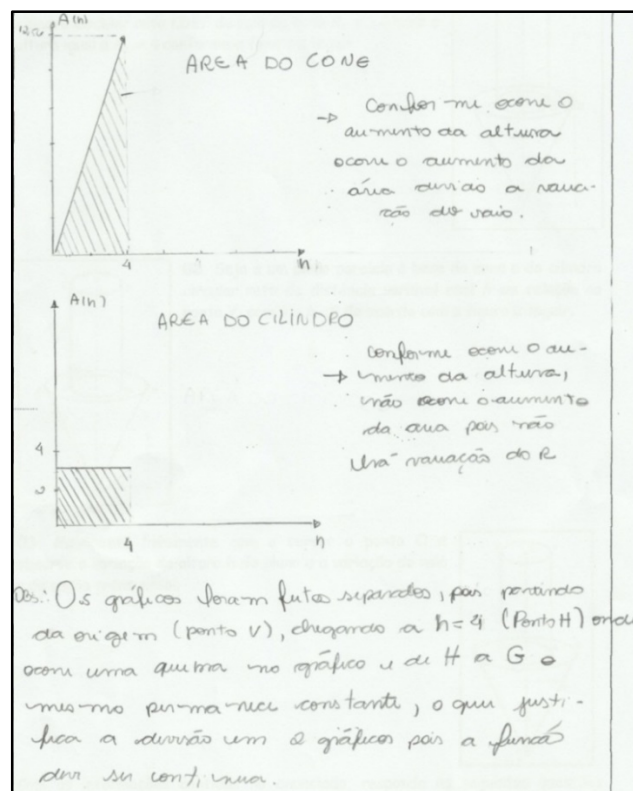 A(h)
AREA DO CONE
→ Confor-me ocorre o
aumento da altura
ocorre o aumento da
área devido a varia-
ção do raio.
4
h
A(h)
AREA DO CILINDRO
conforme ocorre o au-
→ mento da altura,
não ocorre o aumento
da area pois não
há variação do R
4
4
h
Obs.: Os gráficos foram feitos separados, pois partindo
da origem (ponto V), chegando a h=4 (Ponto H) onde
ocorre uma quebra no gráfico e de H a G o
mesmo permanece constante, o que justi-
fica a divisão em 2 gráficos pois a função
deve ser contínua.